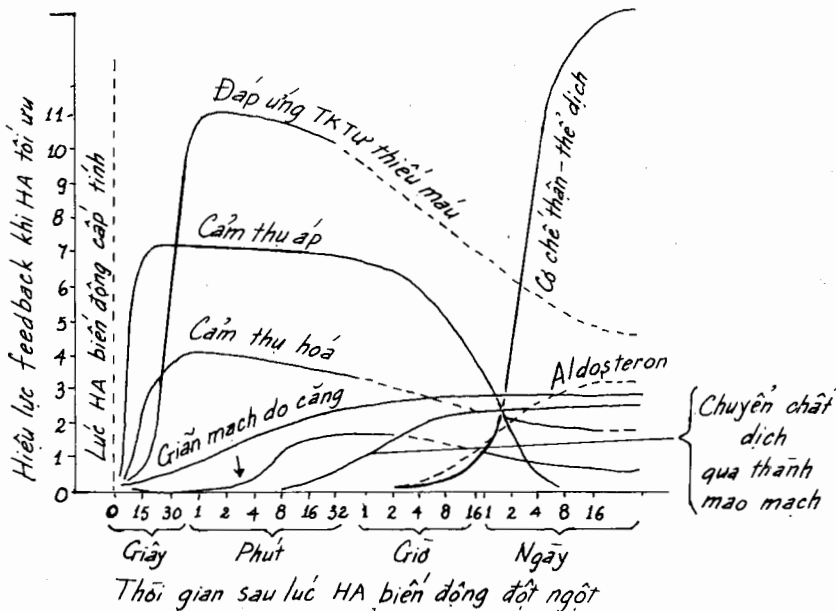 Hiệu lực feedback khi HA tối ưu
Lúc HA biến động cấp tính
11
10
9
8
7
6
5
4
3
2
1
0
Đáp ứng TKTƯ thiếu máu
Cảm thụ áp
Cảm thụ hoá
Giãn mạch do căng
Cơ chế thận-thể dịch
Aldosteron
Chuyển chất
dịch
qua thành
mao mạch
0 15 30 1 2 4 8 16 32 1 2 4 8 16 1 2 4 8 16
Giây Phút Giờ Ngày
Thời gian sau lúc HA biến động đột ngột